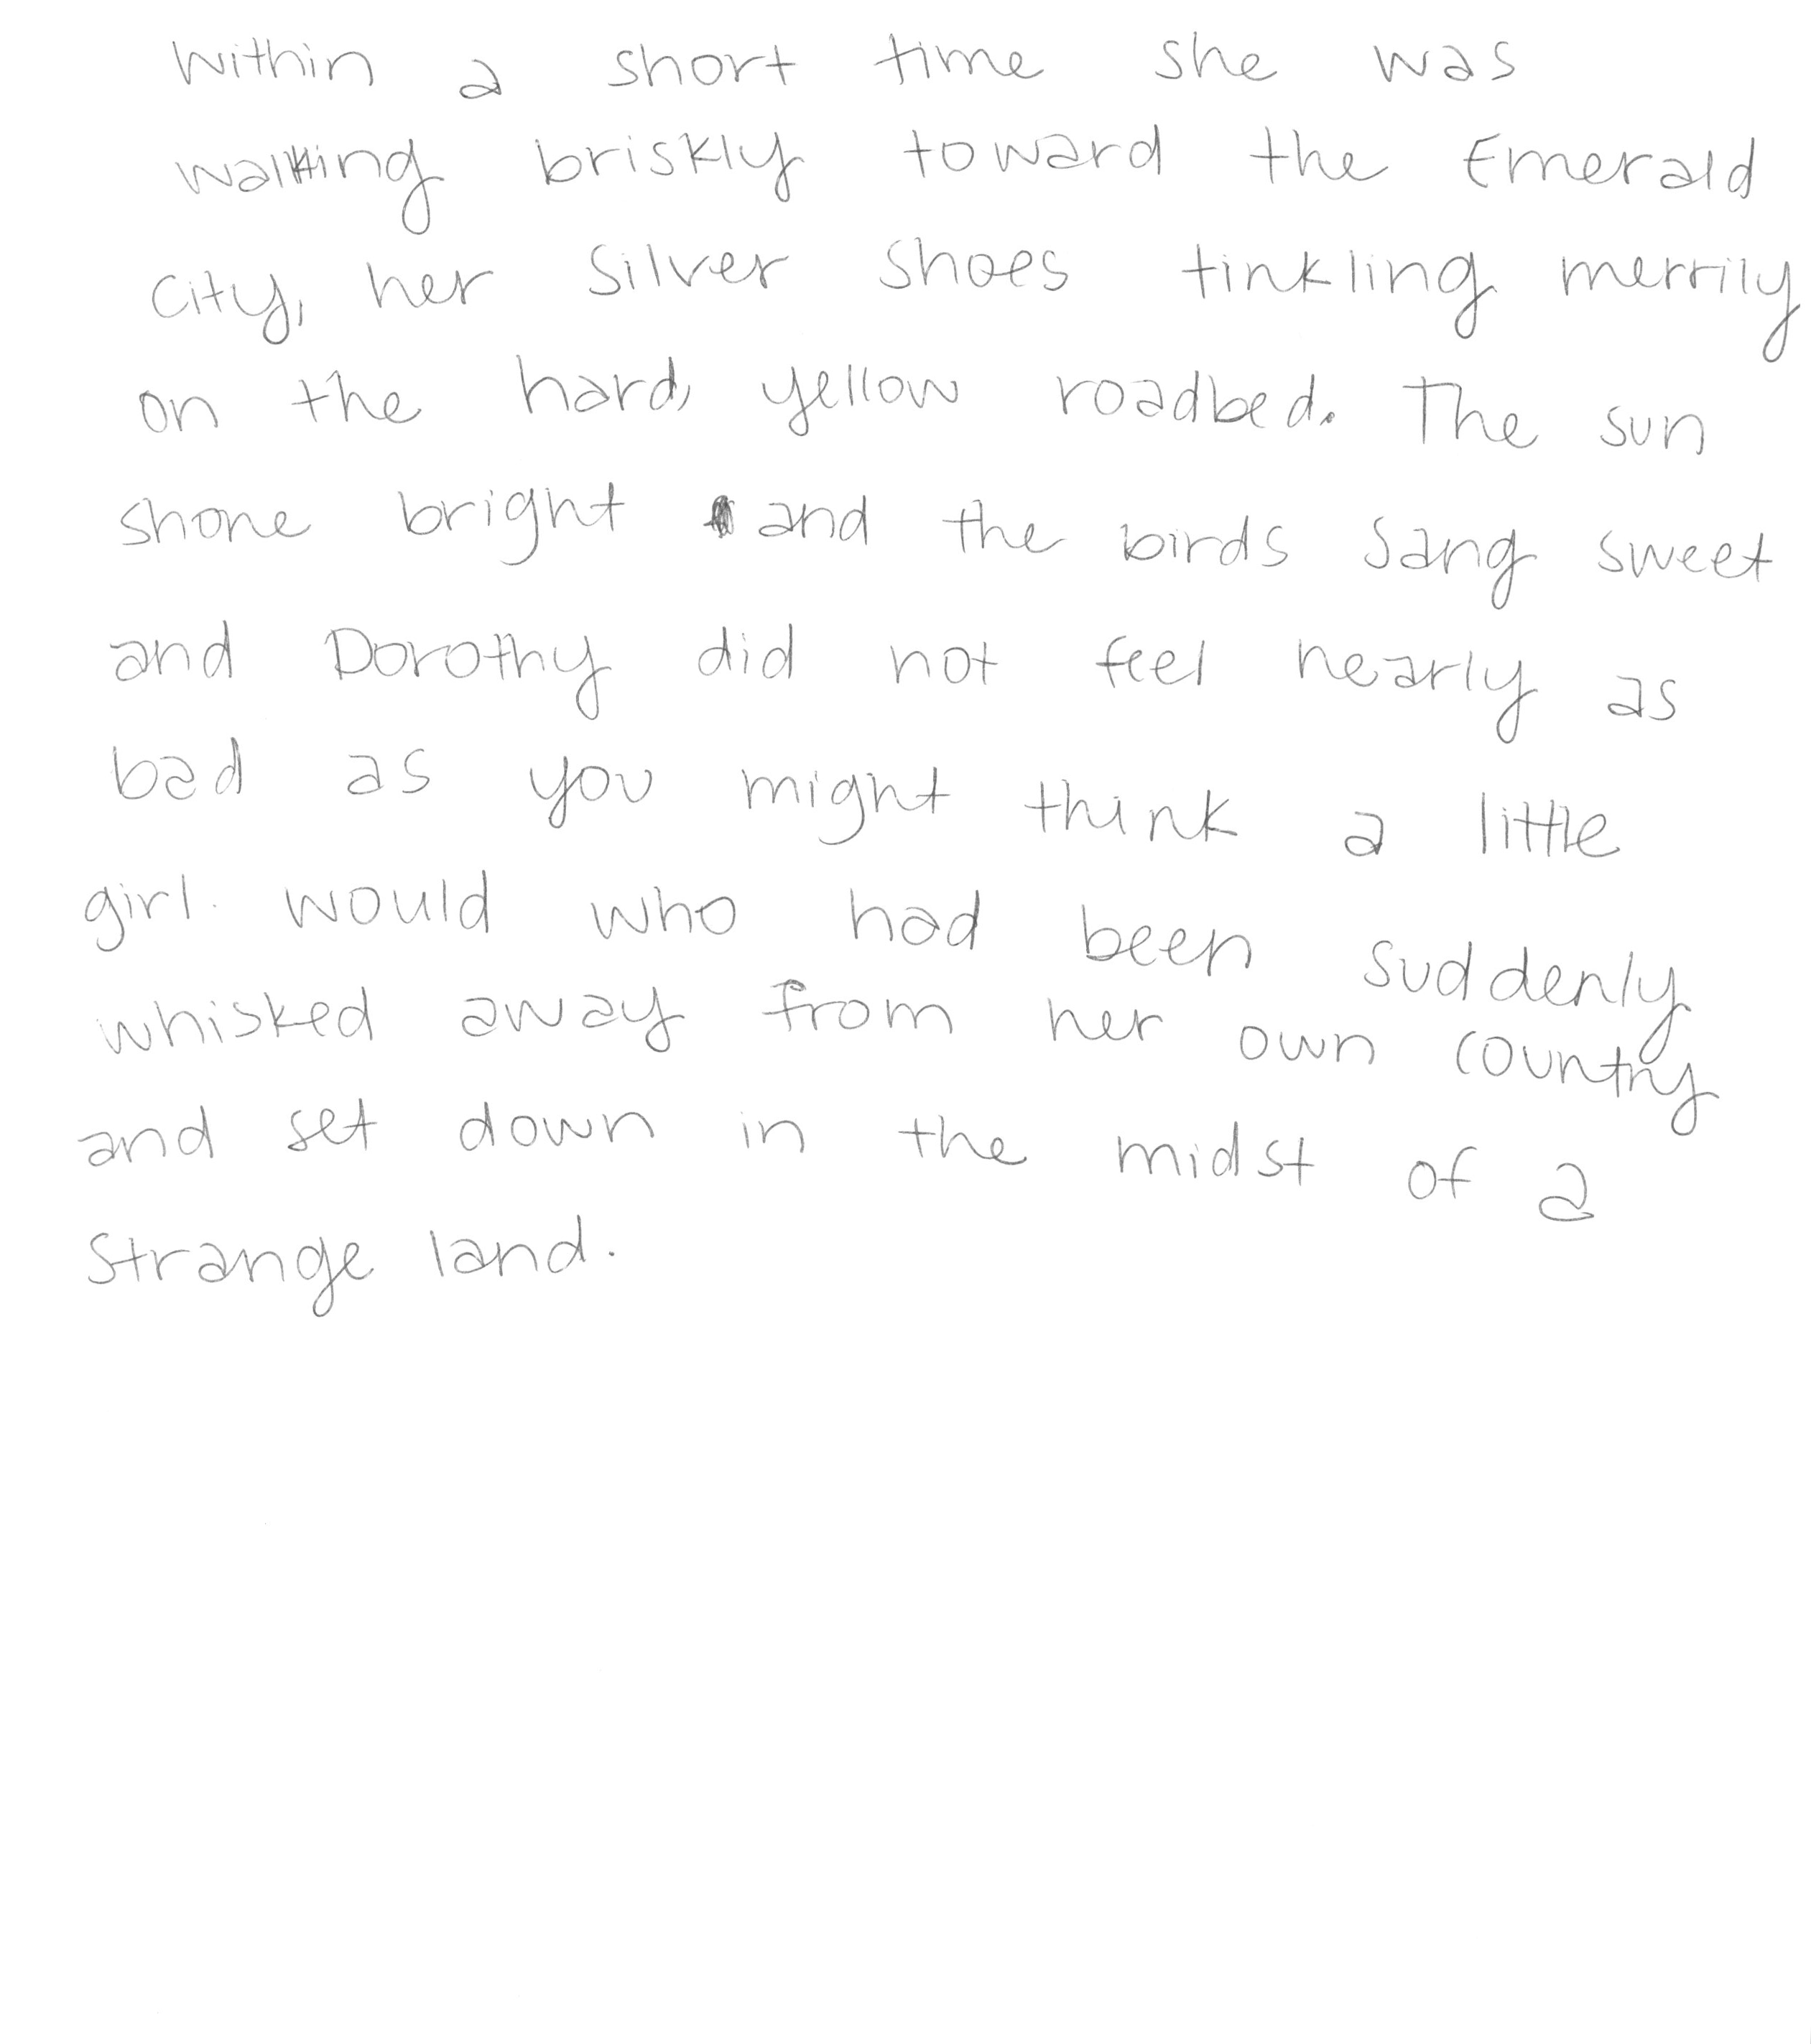 Within a short time she was
walking briskly toward the Emerald
City, her Silver Shoes tinkling merrily
on the hard, yellow roadbed. The sun
shone bright and the birds sang sweet
and Dorothy did not feel nearly as
bad as you might think a little
girl would who had been suddenly
whisked away from her own country
and set down in the midst of a
strange land.